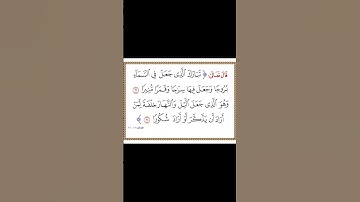 قَالَ تَعَالَىٰ: ﴿ تَبَارَكَ ٱلَّذِى جَعَلَ فِى ٱلسَّمَآءِ
بُرُوجًا وَجَعَلَ فِيهَا سِرَٰجًا وَقَمَرًا مُّنِيرًا ٦١
وَهُوَ ٱلَّذِى جَعَلَ ٱلَّيْلَ وَٱلنَّهَارَ خِلْفَةً لِّمَنْ
أَرَادَ أَن يَذَّكَّرَ أَوْ أَرَادَ شُكُورًا ٦٢ ﴾